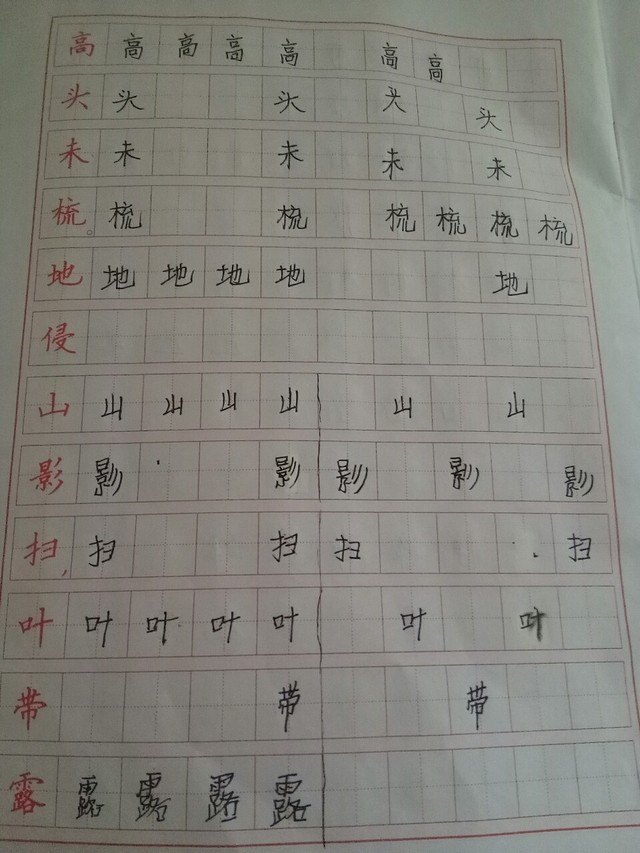 高 高 高 高 高 高 高
头 头 头 头 头
未 未 未 未 未
梳 梳 梳 梳 梳 梳 梳
地 地 地 地 地 地
侵
山 山 山 山 山 山 山
影 影 影 影 影 影
扫 扫 扫 扫 扫
叶 叶 叶 叶 叶 叶 叶
带 带 带
露 露 露 露 露